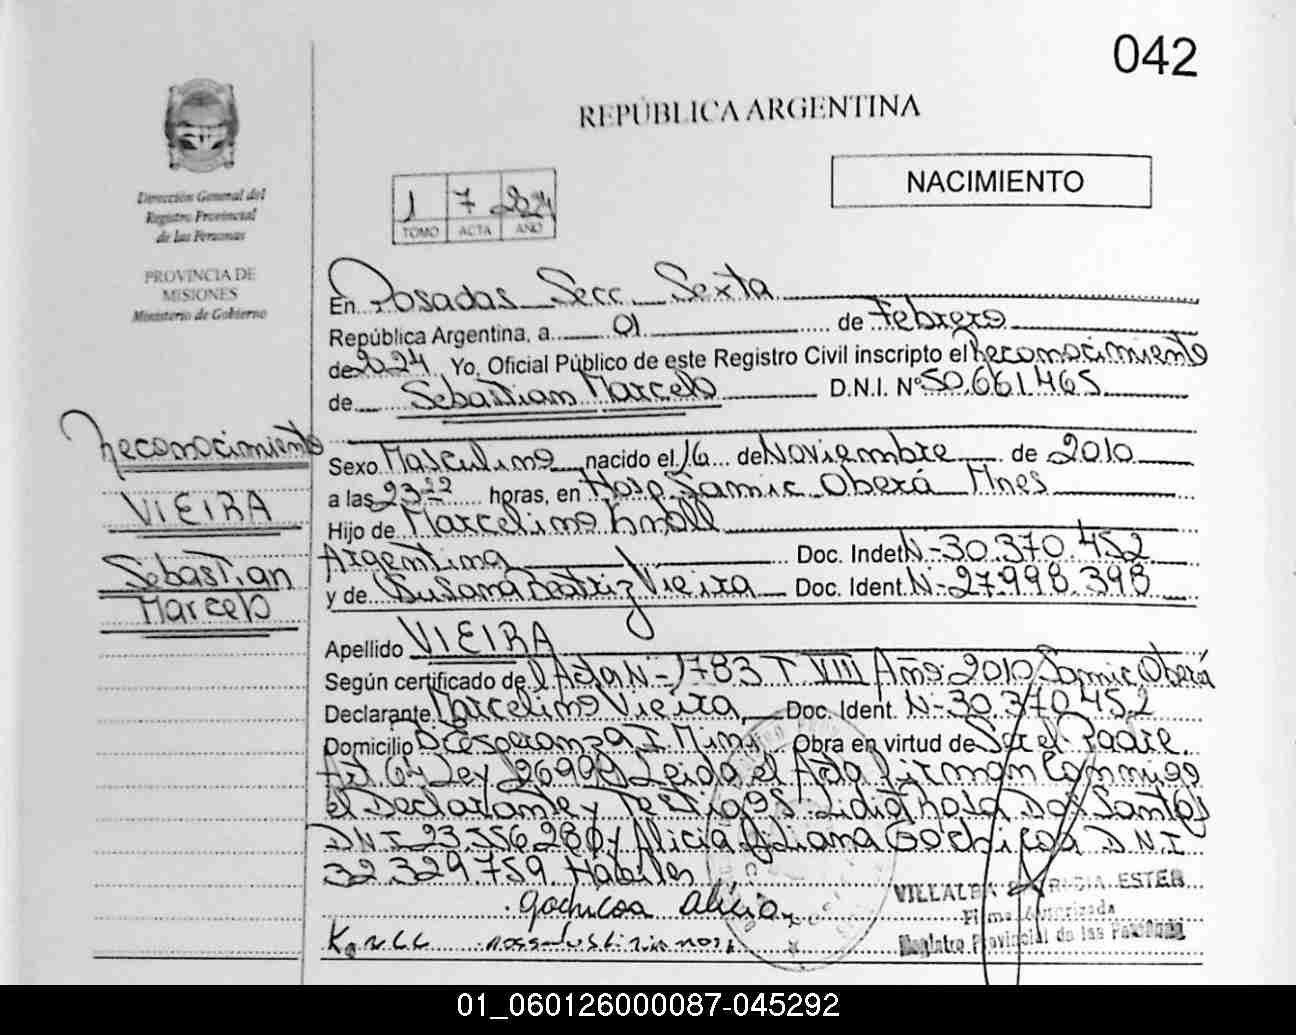 042
REPÚBLICA ARGENTINA
NACIMIENTO
1 7 2024
TOMO ACTA AÑO
Dirección General del
Registro Provincial
de las Personas
PROVINCIA DE
MISIONES
Ministerio de Gobierno
Reconocimiento
VIEIRA
Sebastian
Marcelo
En Posadas Secc. Sexta
República Argentina, a 01 de Febrero
de 2024 Yo, Oficial Público de este Registro Civil inscripto el Reconocimiento
de Sebastian Marcelo D.N.I. Nº 50.661.465
Sexo Masculino nacido el 16 de Noviembre de 2010
a las 23 horas, en Hosp. Samic Oberá Mnes
Hijo de Marcelino Knoll
Argentina Doc. Indet N- 30.370.452
y de Susana Beatriz Vieira Doc. Ident. N- 27.998.398
Apellido VIEIRA
Según certificado de l Acta N- 1783 T VIII Año 2010 Samic Oberá
Declarante Marcelino Vieira Doc. Ident. N- 30.370.452
Domicilio Bº Esperanza I Mnes Obra en virtud de Ser el Padre
Art. 64 Ley 26994 Leida el Acta Firman Conmigo
el Declarante y Testigos: Lidia Rosa Dos Santos
DNI 23.556.280 y Alicia Liliana Gochicoa DNI
32.329.759 Habiles
gochicoa alicia
Knoll
VILLALBA PATRICIA ESTER
Firma Autorizada
Registro Provincial de las Personas
01_060126000087-045292